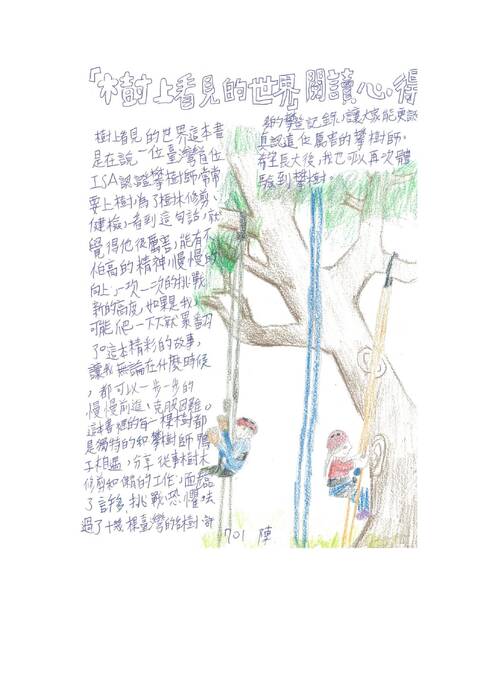 「樹上看見的世界」閱讀心得
樹上看見的世界這本書
是在說一位臺灣首位
ISA認證攀樹師常常
要上樹,為了樹木修剪、
健檢,看到這句話,就
覺得他很厲害,能有不
怕高的精神,慢慢的
向上,一次一次的挑戰
新的高度,如果是我
可能爬一下下就累
了。這本精彩的故事,
讓我無論在什麼時候
,都可以一步一步的
慢慢前進、克服困難。
這本書裡的每一棵樹都
是獨特的和攀樹師鴨
子相遇,分享從事樹木
修剪和 的工作,面臨
了許多挑戰、恐懼,
過了十幾棵臺灣的 樹
的攀登記錄,讓大家能更
真認這位厲害的攀樹師。
希望長大後,我也可以再次體
驗到攀樹。
701 陳